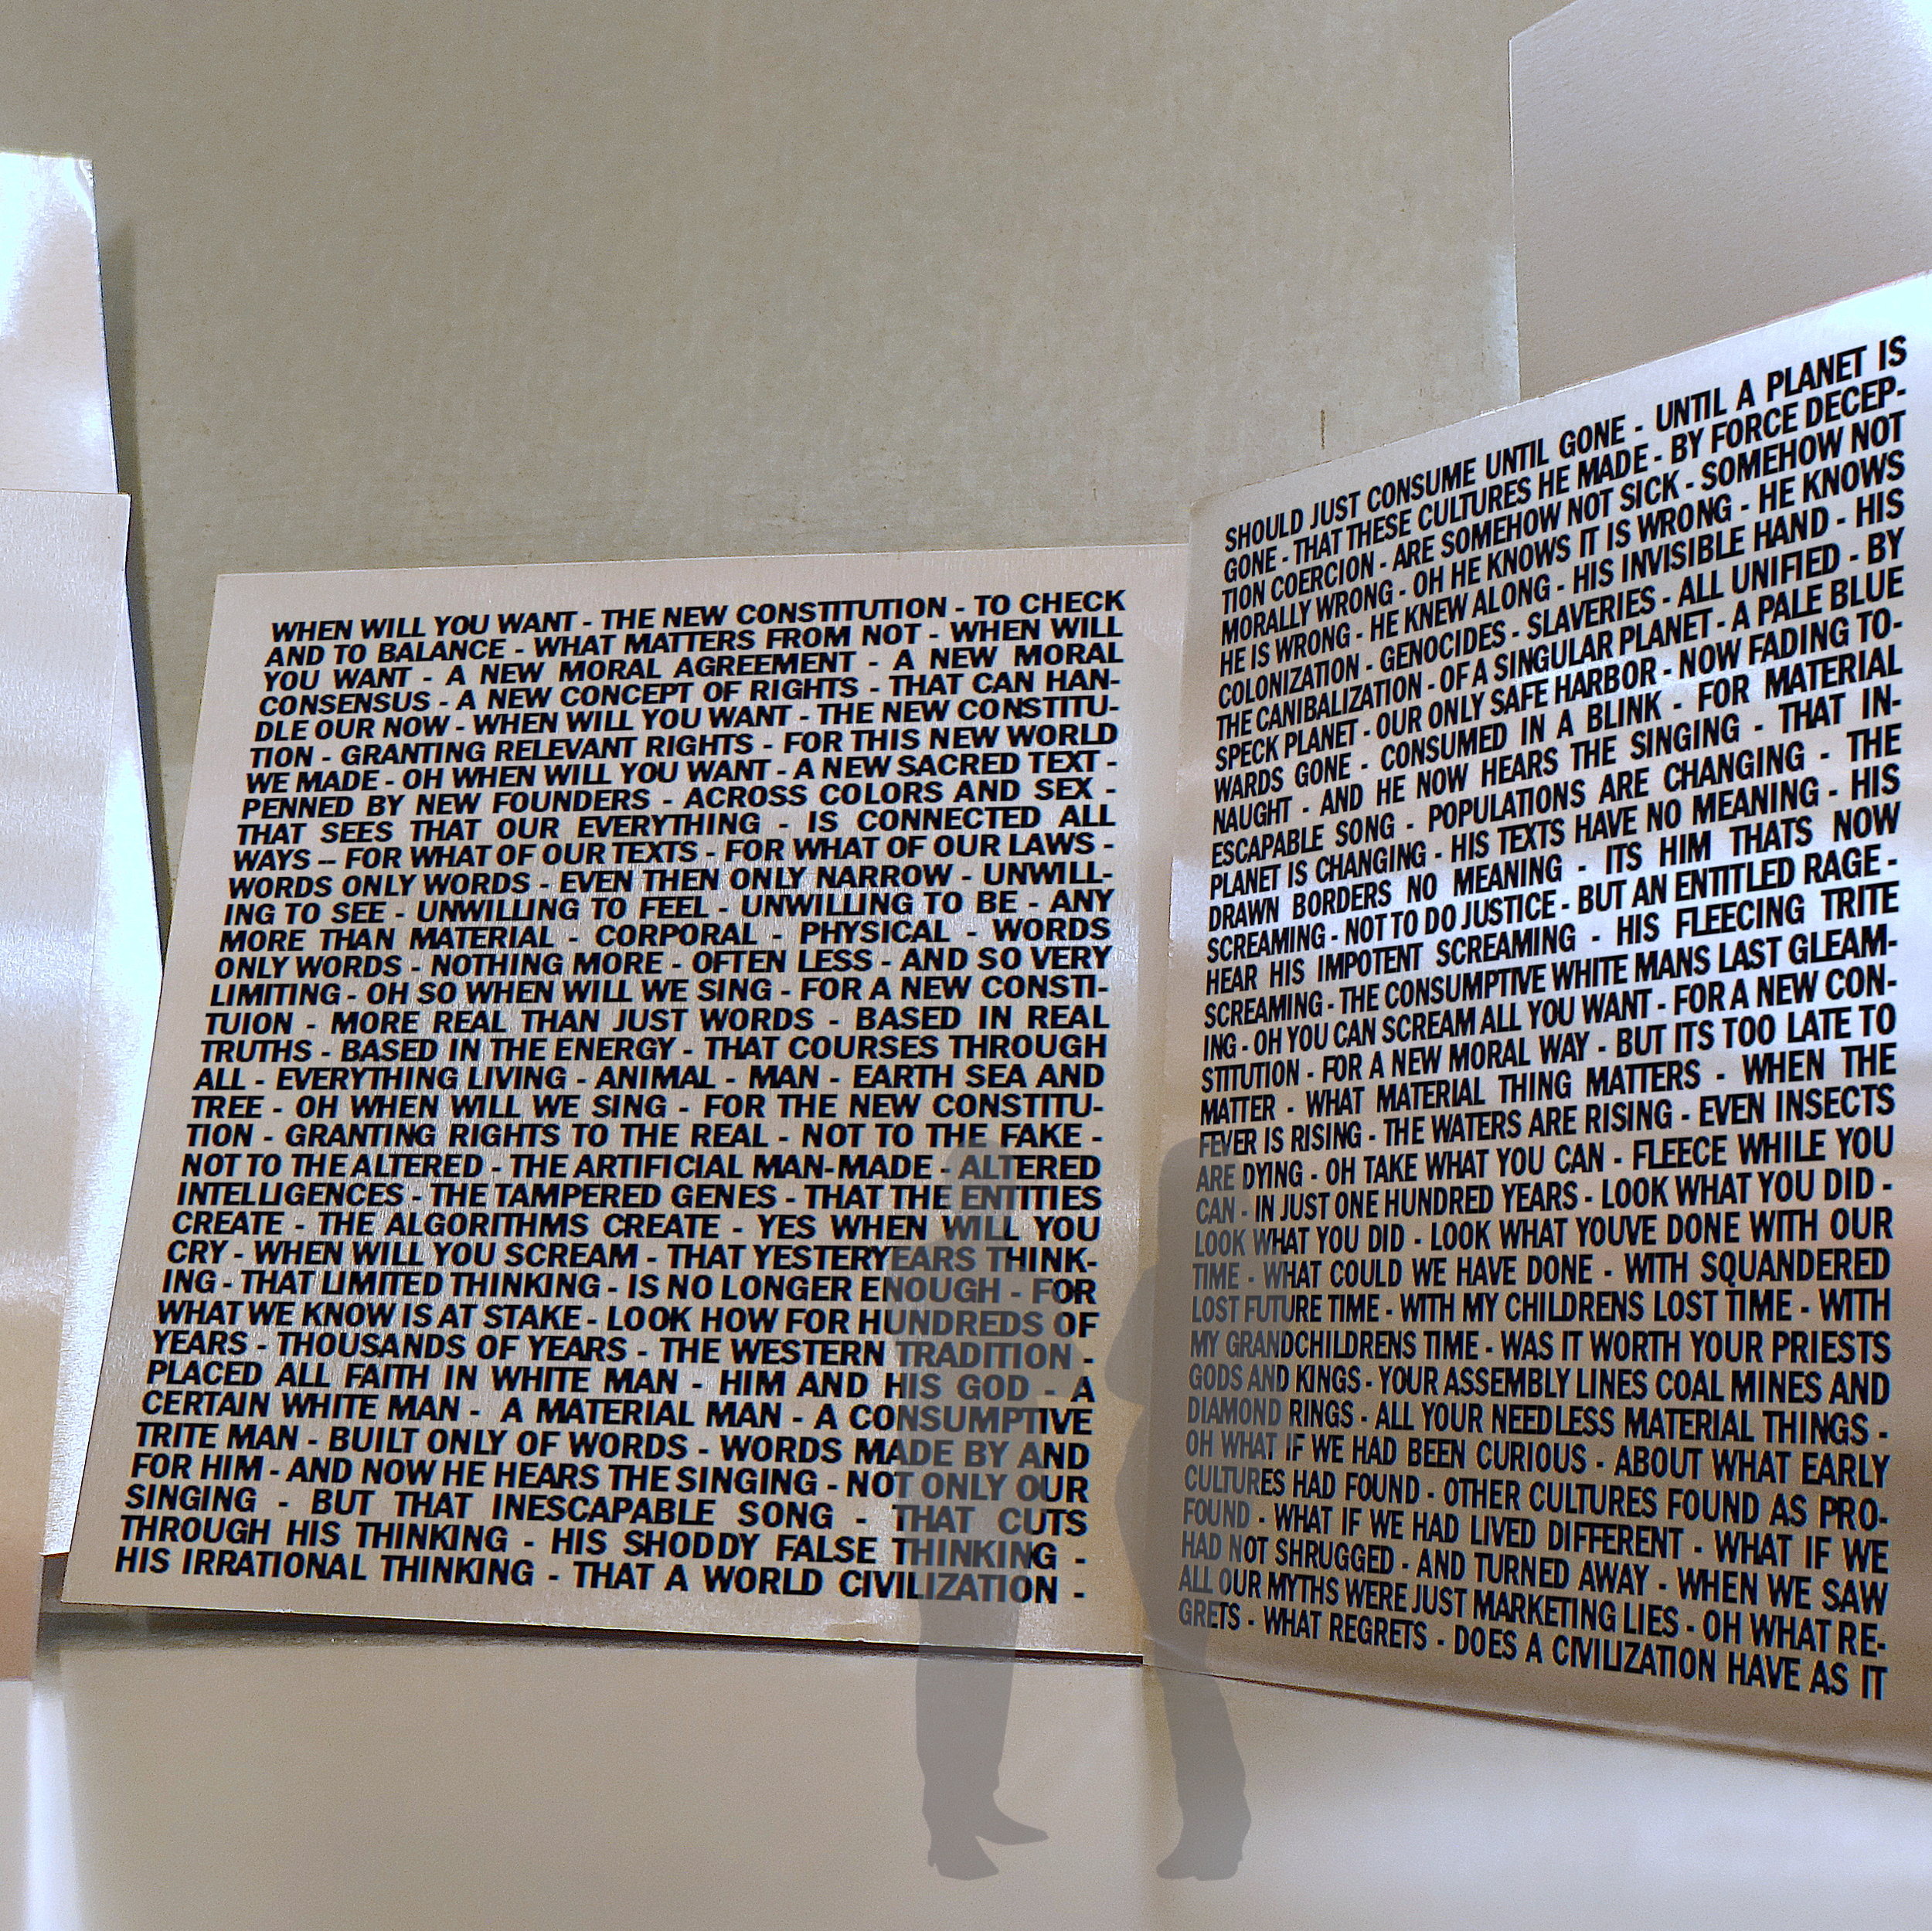 WHEN WILL YOU WANT - THE NEW CONSTITUTION - TO CHECK
AND TO BALANCE - WHAT MATTERS FROM NOT - WHEN WILL
YOU WANT - A NEW MORAL AGREEMENT - A NEW MORAL
CONSENSUS - A NEW CONCEPT OF RIGHTS - THAT CAN HAN-
DLE OUR NOW - WHEN WILL YOU WANT - THE NEW CONSTITU-
TION - GRANTING RELEVANT RIGHTS - FOR THIS NEW WORLD
WE MADE - OH WHEN WILL YOU WANT - A NEW SACRED TEXT -
PENNED BY NEW FOUNDERS - ACROSS COLORS AND SEX -
THAT SEES THAT OUR EVERYTHING - IS CONNECTED ALL
WAYS -- FOR WHAT OF OUR TEXTS - FOR WHAT OF OUR LAWS -
WORDS ONLY WORDS - EVEN THEN ONLY NARROW - UNWILL-
ING TO SEE - UNWILLING TO FEEL - UNWILLING TO BE - ANY
MORE THAN MATERIAL - CORPORAL - PHYSICAL - WORDS
ONLY WORDS - NOTHING MORE - OFTEN LESS - AND SO VERY
LIMITING - OH SO WHEN WILL WE SING - FOR A NEW CONSTI-
TUION - MORE REAL THAN JUST WORDS - BASED IN REAL
TRUTHS - BASED IN THE ENERGY - THAT COURSES THROUGH
ALL - EVERYTHING LIVING - ANIMAL - MAN - EARTH SEA AND
TREE - OH WHEN WILL WE SING - FOR THE NEW CONSTITU-
TION - GRANTING RIGHTS TO THE REAL - NOT TO THE FAKE -
NOT TO THE ALTERED - THE ARTIFICIAL MAN-MADE - ALTERED
INTELLIGENCES - THE TAMPERED GENES - THAT THE ENTITIES
CREATE - THE ALGORITHMS CREATE - YES WHEN WILL YOU
CRY - WHEN WILL YOU SCREAM - THAT YESTERYEARS THINK-
ING - THAT LIMITED THINKING - IS NO LONGER ENOUGH - FOR
WHAT WE KNOW IS AT STAKE - LOOK HOW FOR HUNDREDS OF
YEARS - THOUSANDS OF YEARS - THE WESTERN TRADITION -
PLACED ALL FAITH IN WHITE MAN - HIM AND HIS GOD - A
CERTAIN WHITE MAN - A MATERIAL MAN - A CONSUMPTIVE
TRITE MAN - BUILT ONLY OF WORDS - WORDS MADE BY AND
FOR HIM - AND NOW HE HEARS THE SINGING - NOT ONLY OUR
SINGING - BUT THAT INESCAPABLE SONG - THAT CUTS
THROUGH HIS THINKING - HIS SHODDY FALSE THINKING -
HIS IRRATIONAL THINKING - THAT A WORLD CIVILIZATION -
SHOULD JUST CONSUME UNTIL GONE - UNTIL A PLANET IS
GONE - THAT THESE CULTURES HE MADE - BY FORCE DECEP-
TION COERCION - ARE SOMEHOW NOT SICK - SOMEHOW NOT
MORALLY WRONG - OH HE KNOWS IT IS WRONG - HE KNOWS
HE IS WRONG - HE KNEW ALONG - HIS INVISIBLE HAND - HIS
COLONIZATION - GENOCIDES - SLAVERIES - ALL UNIFIED - BY
THE CANIBALIZATION - OF A SINGULAR PLANET - A PALE BLUE
SPECK PLANET - OUR ONLY SAFE HARBOR - NOW FADING TO-
WARDS GONE - CONSUMED IN A BLINK - FOR MATERIAL
NAUGHT - AND HE NOW HEARS THE SINGING - THAT IN-
ESCAPABLE SONG - POPULATIONS ARE CHANGING - THE
PLANET IS CHANGING - HIS TEXTS HAVE NO MEANING - HIS
DRAWN BORDERS NO MEANING - ITS HIM THATS NOW
SCREAMING - NOT TO DO JUSTICE - BUT AN ENTITLED RAGE -
HEAR HIS IMPOTENT SCREAMING - HIS FLEECING TRITE
SCREAMING - THE CONSUMPTIVE WHITE MANS LAST GLEAM-
ING - OH YOU CAN SCREAM ALL YOU WANT - FOR A NEW CON-
STITUTION - FOR A NEW MORAL WAY - BUT ITS TOO LATE TO
MATTER - WHAT MATERIAL THING MATTERS - WHEN THE
FEVER IS RISING - THE WATERS ARE RISING - EVEN INSECTS
ARE DYING - OH TAKE WHAT YOU CAN - FLEECE WHILE YOU
CAN - IN JUST ONE HUNDRED YEARS - LOOK WHAT YOU DID -
LOOK WHAT YOU DID - LOOK WHAT YOUVE DONE WITH OUR
TIME - WHAT COULD WE HAVE DONE - WITH SQUANDERED
LOST FUTURE TIME - WITH MY CHILDRENS LOST TIME - WITH
MY GRANDCHILDRENS TIME - WAS IT WORTH YOUR PRIESTS
GODS AND KINGS - YOUR ASSEMBLY LINES COAL MINES AND
DIAMOND RINGS - ALL YOUR NEEDLESS MATERIAL THINGS -
OH WHAT IF WE HAD BEEN CURIOUS - ABOUT WHAT EARLY
CULTURES HAD FOUND - OTHER CULTURES FOUND AS PRO-
FOUND - WHAT IF WE HAD LIVED DIFFERENT - WHAT IF WE
HAD NOT SHRUGGED - AND TURNED AWAY - WHEN WE SAW
ALL OUR MYTHS WERE JUST MARKETING LIES - OH WHAT RE-
GRETS - WHAT REGRETS - DOES A CIVILIZATION HAVE AS IT